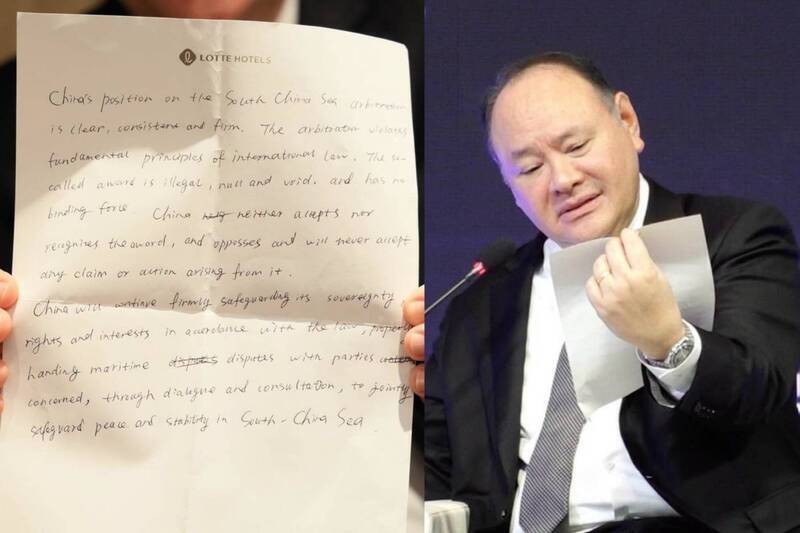 LOTTE HOTELS
China's position on the South China Sea arbitration
is clear, consistent and firm. The arbitration violates
fundamental principles of international law. The so-
called award is illegal, null and void. and has no
binding force. China neither accepts nor
recognizes the award, and opposes and will never accept
any claim or action arising from it.
China will continue firmly safeguarding its sovereignty,
rights and interests in accordance with the law, properly
handing maritime disputs disputes with parties
concerned, through dialogue and consultation, to jointly
safeguard peace and stability in South-China Sea.